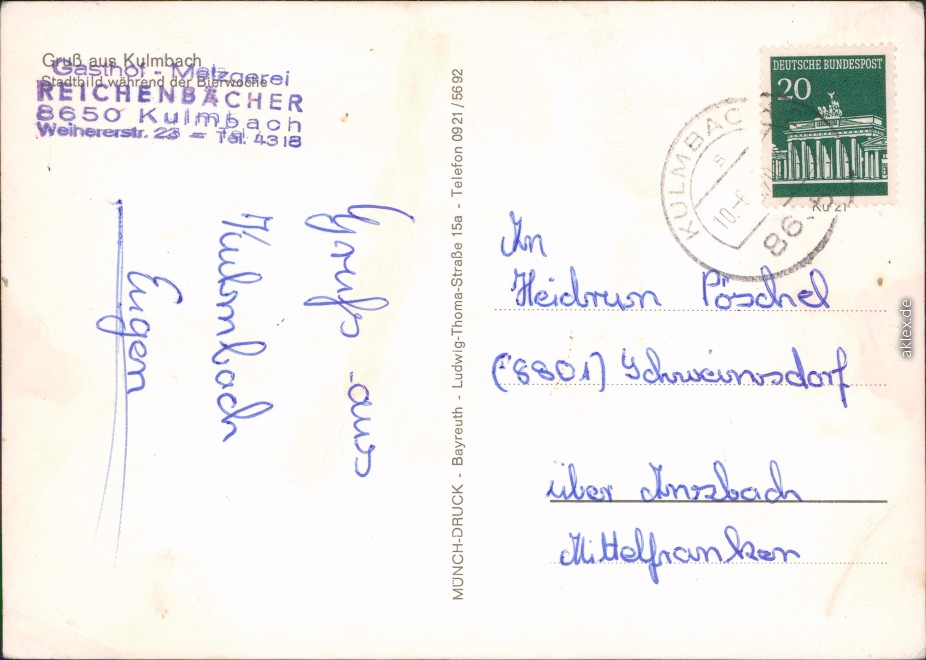 Gruß aus Kulmbach
Stadtbild während der Bierwoche
Gasthof - Metzgerei
REICHENBÄCHER
8650 Kulmbach
Weihererstr. 23 - Tel. 4318
Gruß aus
Kulmbach
Eugen
MÜNCH-DRUCK - Bayreuth - Ludwig-Thoma-Straße 15a - Telefon 0921/5692
DEUTSCHE BUNDESPOST
20
KULMBAC
s
10.-6.
86
Ku 21
An
Heidrun Pöschel
(8801) Schweinsdorf
über Ansbach
Mittelfranken
aklex.de